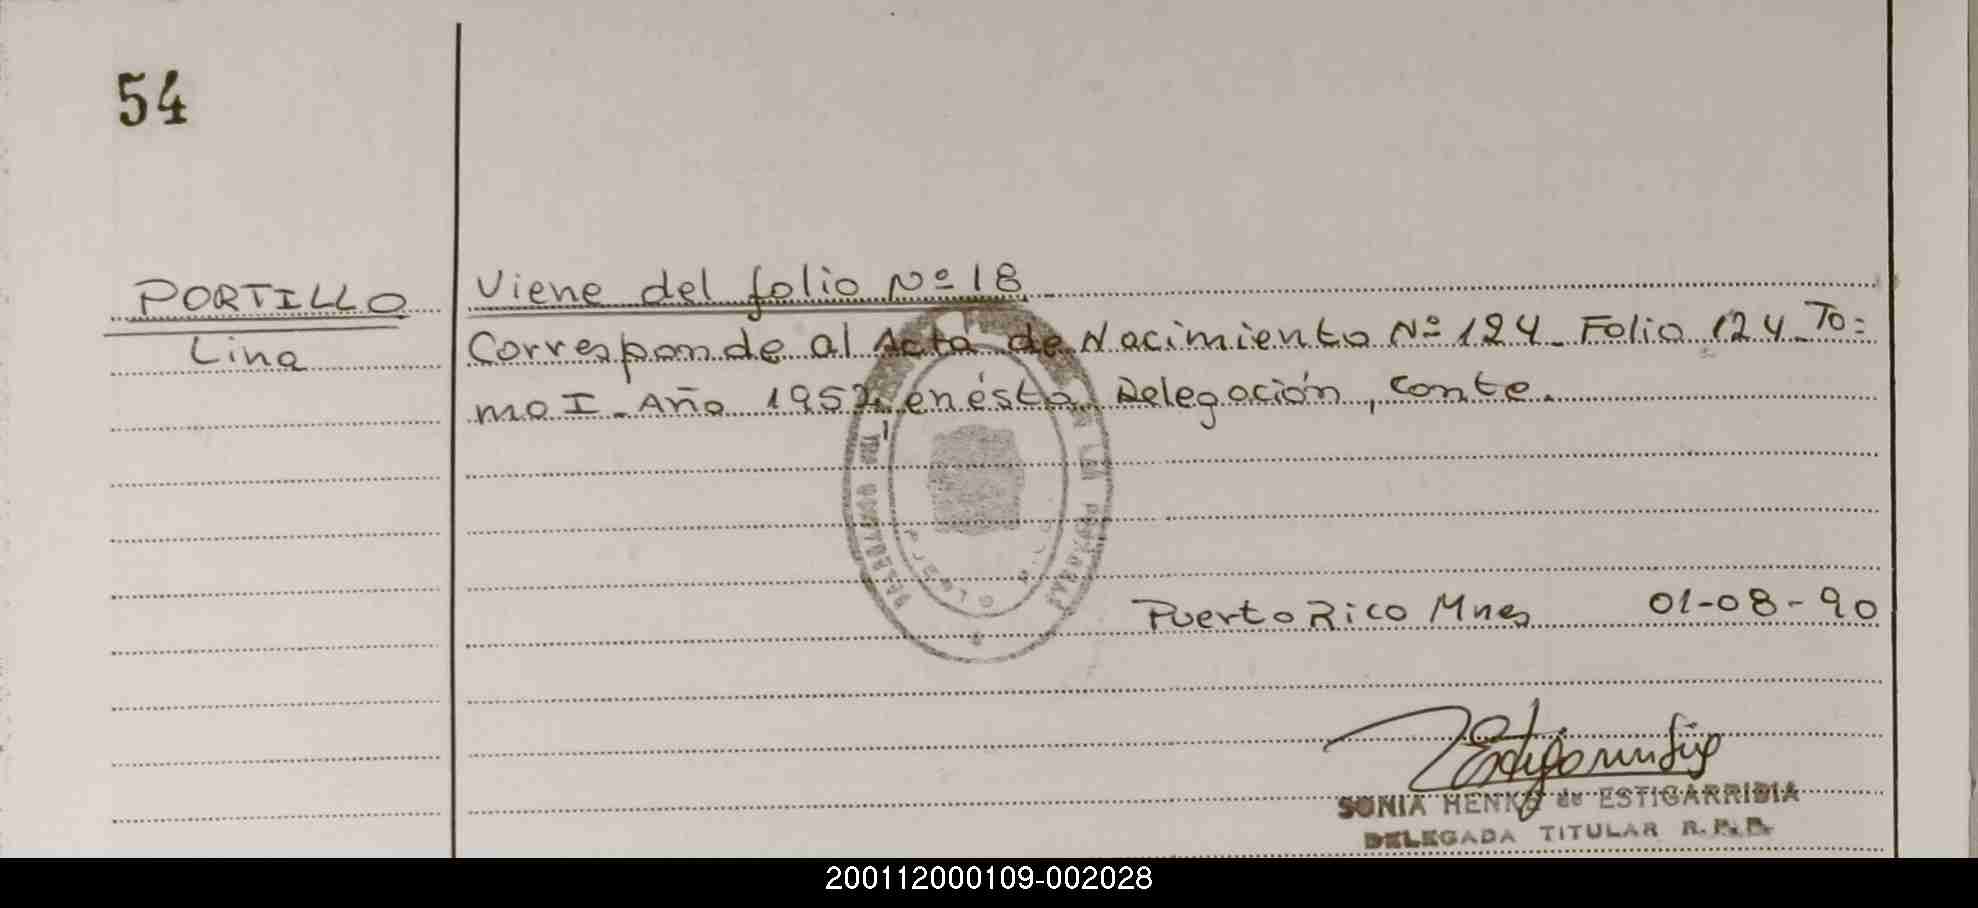 54
PORTILLO
Lina
Viene del folio Nº 18
Corresponde al Acta de Nacimiento Nº 124 - Folio 124 - To=
mo I - Año 1952, en ésta Delegación, conte.
PUERTO RICO
Puerto Rico Mnes 01-08-90
SONIA HENKE de ESTIGARRIBIA
DELEGADA TITULAR R.P.P.
200112000109-002028